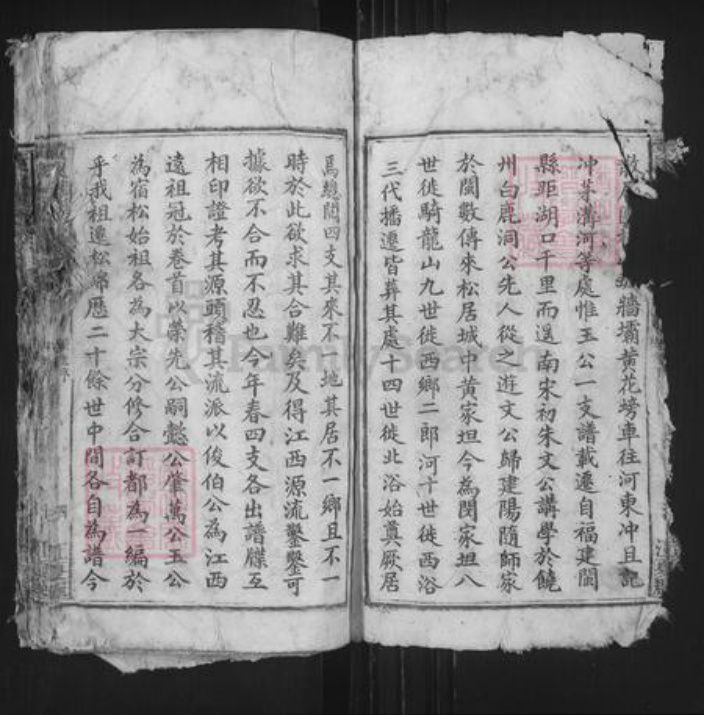 牆壩黃花塝車往河東冲且記
冲茅溝河等處惟玉公一支譜載遷自福建閩
縣距湖口千里而遥南宋初朱文公講學於饒
州白鹿洞公先人從之遊文公歸建陽隨師家
於閩數傳來松居城中黄家坦今為閔家坦八
世徙騎龍山九世徙西鄉二郎河十世徙西浴
三代播遷皆葬其處十四世徙北浴始奠厥居
焉總閱四支其來不一地其居不一鄉且不一
時於此欲求其合難矣及得江西源流鑿鑿可
據欲不合而不忍也今年春四支各出譜牒互
相印證考其源頭稽其流派以俊伯公為江西
遠祖冠於卷首以榮先公嗣懿公肇萬公玉公
為宿松始祖各為大宗分修合訂都為一編於
乎我祖遷松綿歷二十餘世中間各自為譜今
FamilySearch